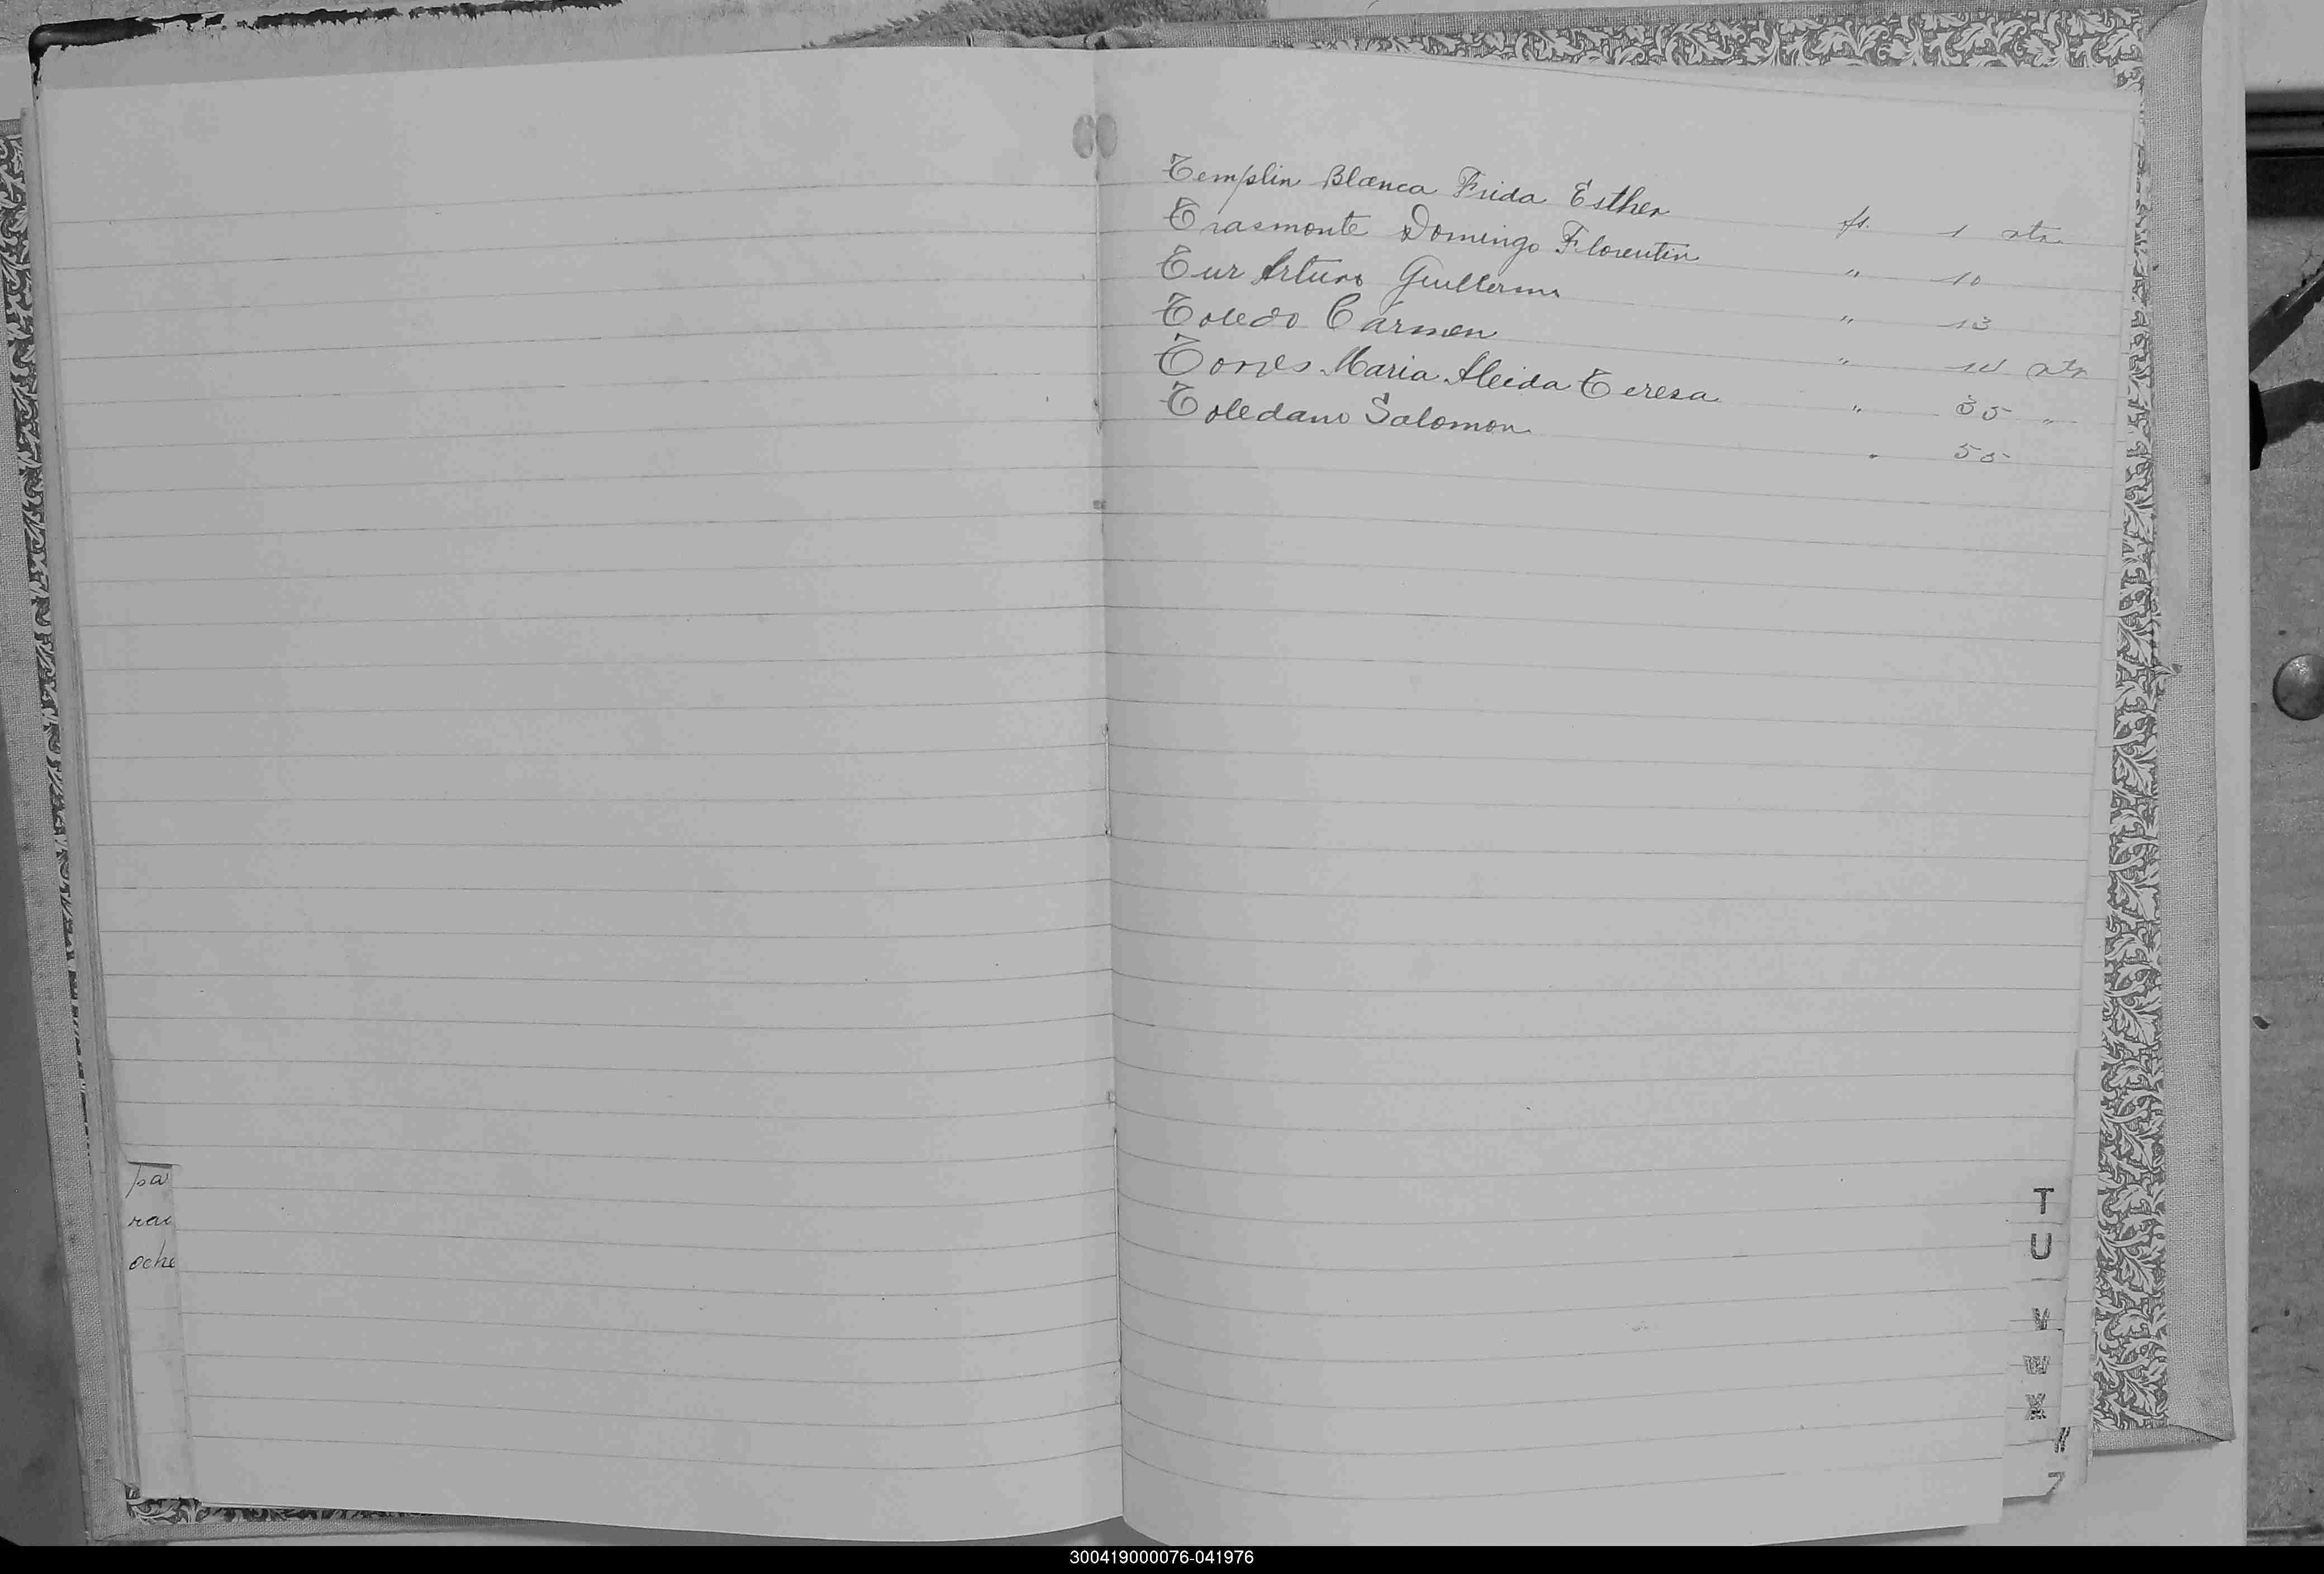 Templin Blanca Frida Esther fs. 1 vta
Trasmonte Domingo Florentin " 10
Tur Arturo Guillermo " 13
Toledo Carmen " 14 vta
Torres Maria Aleida Teresa " 35 "
Toledano Salomon " 55
pa
rac
oche
T
U
V
W
X
Y
Z
300419000076-041976